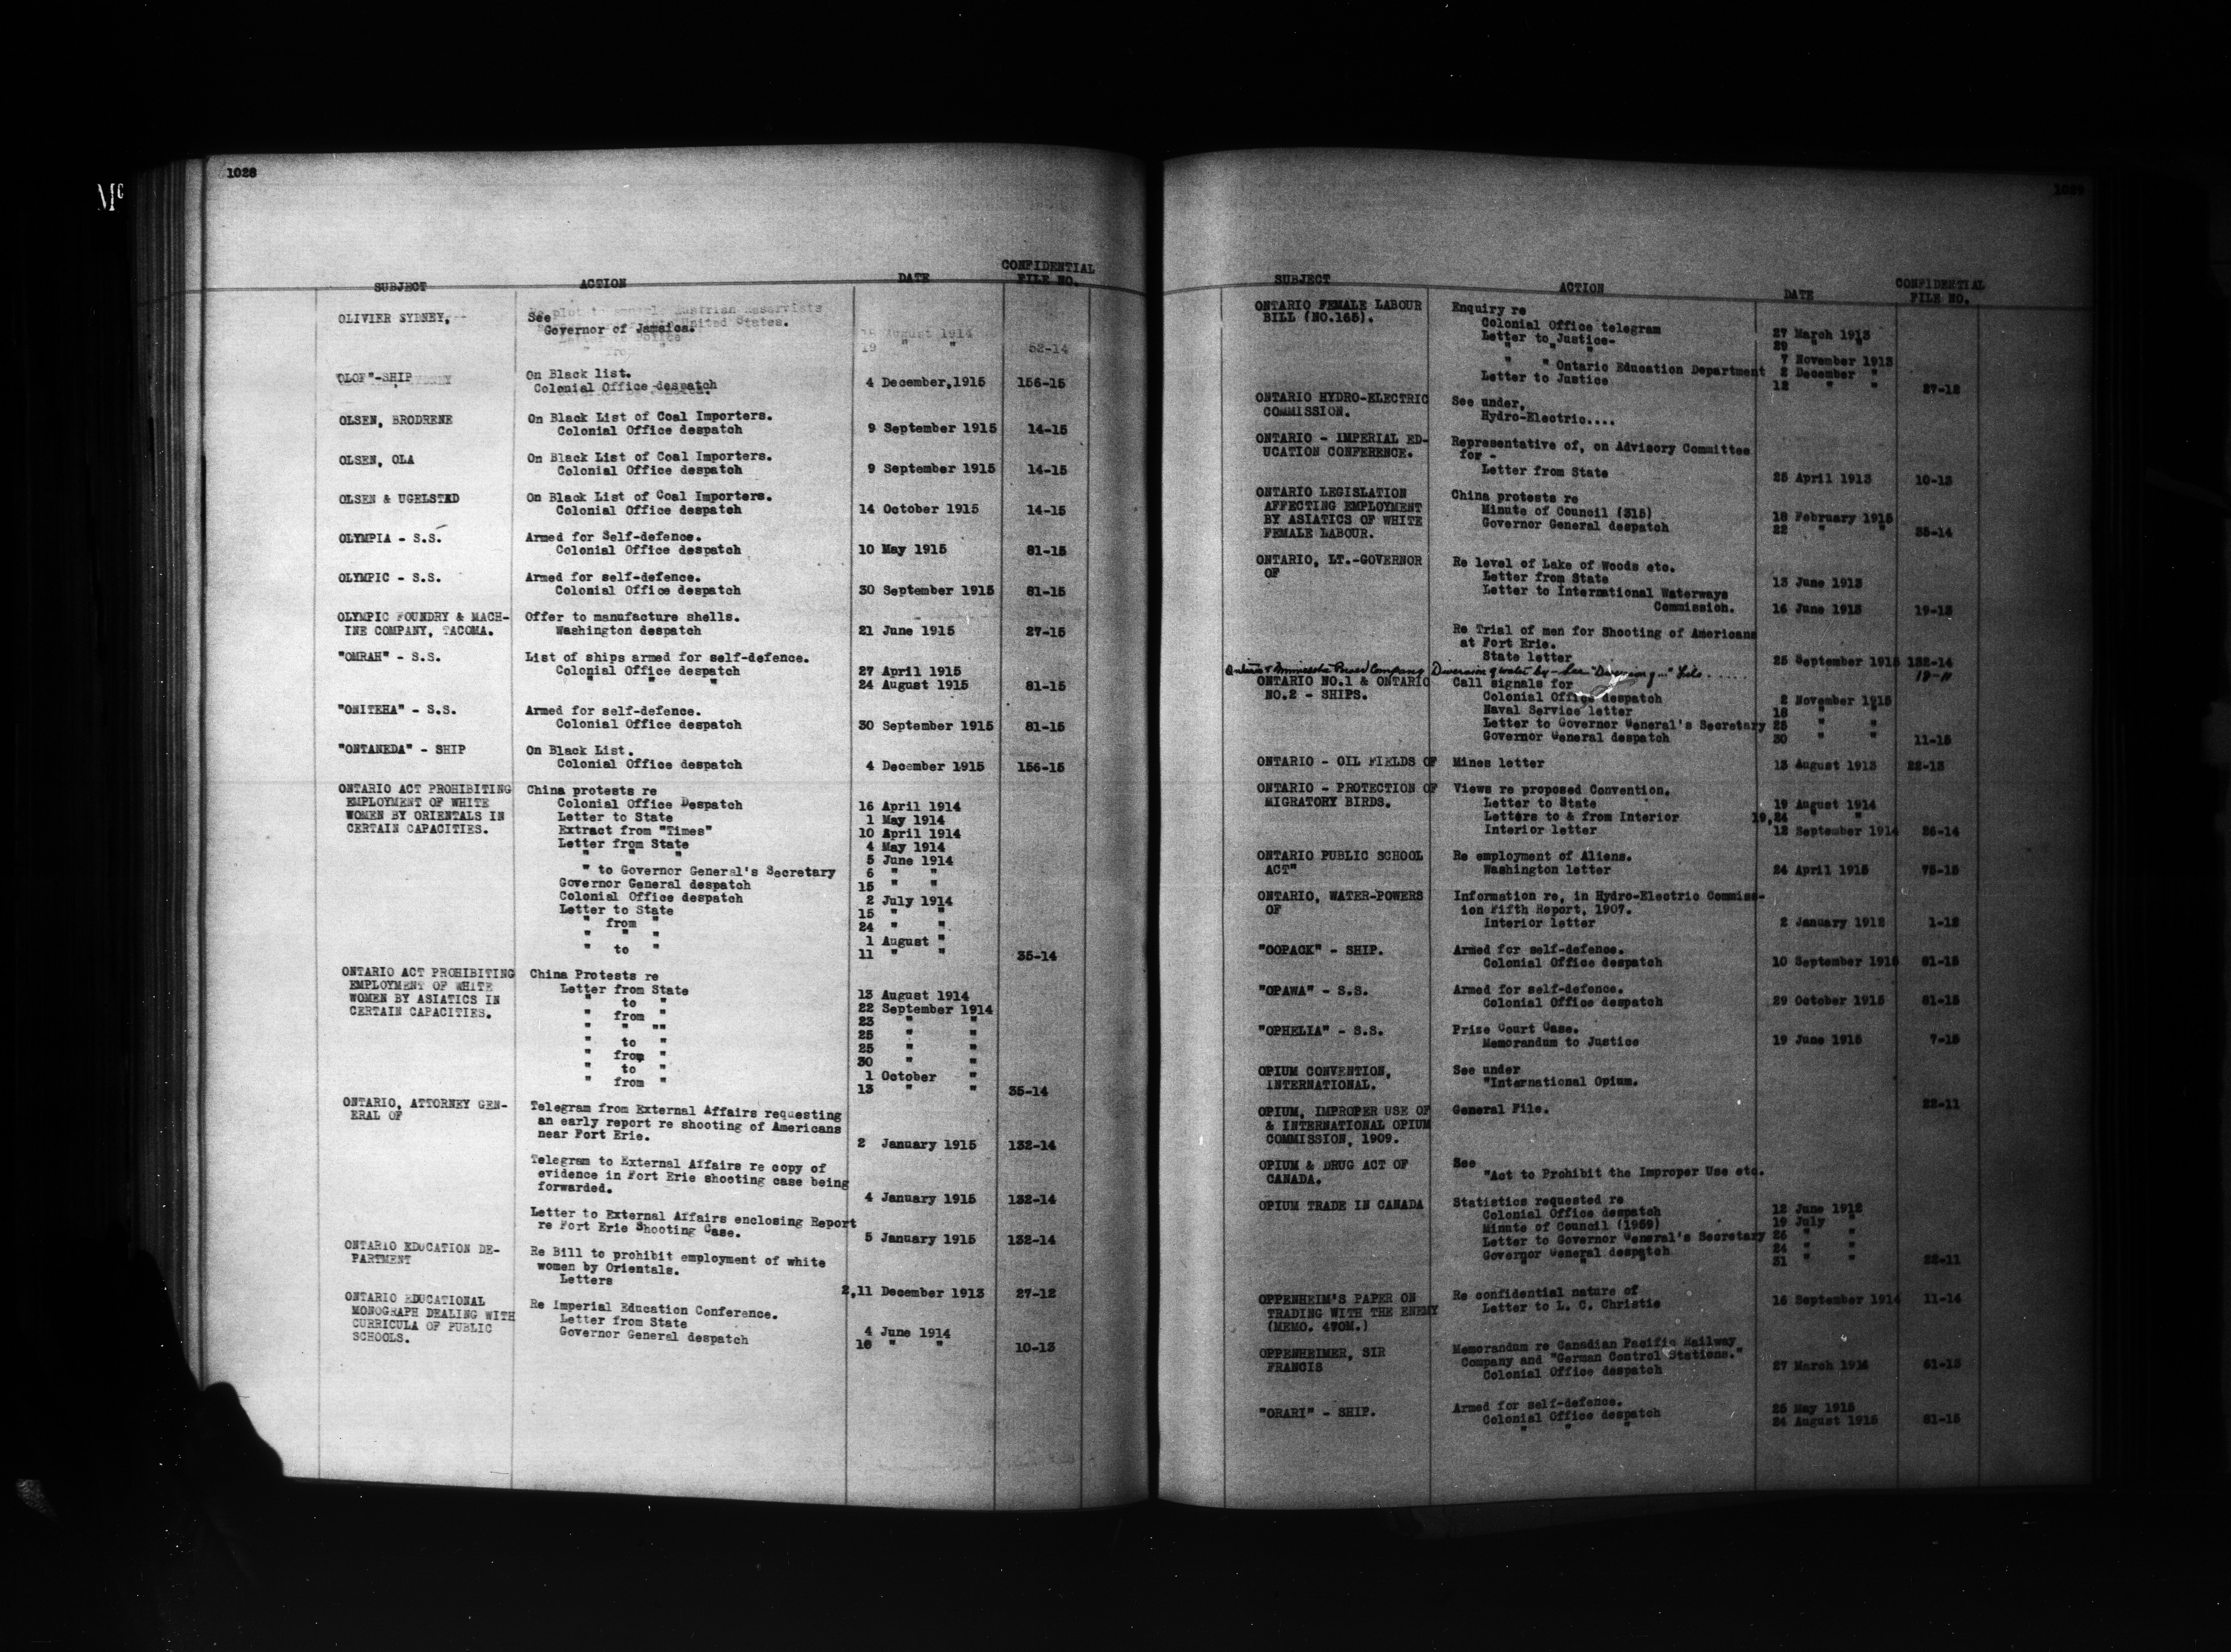 Mc
1028
SUBJECT ACTION DATE CONFIDENTIAL FILE NO.
OLIVIER SYDNEY, See
Governor of Jamaica.
19 " " 52-14
"OLOF"-SHIP On Black list.
Colonial Office despatch 4 December,1915 156-15
OLSEN, BRODRENE On Black List of Coal Importers.
Colonial Office despatch 9 September 1915 14-15
OLSEN, OLA On Black List of Coal Importers.
Colonial Office despatch 9 September 1915 14-15
OLSEN & UGELSTAD On Black List of Coal Importers.
Colonial Office despatch 14 October 1915 14-15
OLYMPIA - S.S. Armed for Self-defence.
Colonial Office despatch 10 May 1915 81-15
OLYMPIC - S.S. Armed for self-defence.
Colonial Office despatch 30 September 1915 81-15
OLYMPIC FOUNDRY & MACH- Offer to manufacture shells.
INE COMPANY, TACOMA. Washington despatch 21 June 1915 27-15
"OMRAH" - S.S. List of ships armed for self-defence.
Colonial Office despatch 27 April 1915
" " " 24 August 1915 81-15
"ONITEHA" - S.S. Armed for self-defence.
Colonial Office despatch 30 September 1915 81-15
"ONTANEDA" - SHIP On Black List.
Colonial Office despatch 4 December 1915 156-15
ONTARIO ACT PROHIBITING China protests re
EMPLOYMENT OF WHITE Colonial Office Despatch 16 April 1914
WOMEN BY ORIENTALS IN Letter to State 1 May 1914
CERTAIN CAPACITIES. Extract from "Times" 10 April 1914
Letter from State 4 May 1914
" " " 5 June 1914
" to Governor General's Secretary 6 " "
Governor General despatch 15 " "
Colonial Office despatch 2 July 1914
Letter to State 15 " "
" from " 24 " "
" " " 1 August "
" to " 11 " " 35-14
ONTARIO ACT PROHIBITING China Protests re
EMPLOYMENT OF WHITE Letter from State 13 August 1914
WOMEN BY ASIATICS IN " to " 22 September 1914
CERTAIN CAPACITIES. " from " 23 " "
" " "" 25 " "
" to " 25 " "
" from " 30 " "
" to " 1 October "
" from " 13 " " 35-14
ONTARIO, ATTORNEY GEN- Telegram from External Affairs requesting
ERAL OF an early report re shooting of Americans
near Fort Erie. 2 January 1915 132-14
Telegram to External Affairs re copy of
evidence in Fort Erie shooting case being
forwarded. 4 January 1915 132-14
Letter to External Affairs enclosing Report
re Fort Erie Shooting Case. 5 January 1915 132-14
ONTARIO EDUCATION DE- Re Bill to prohibit employment of white
PARTMENT women by Orientals.
Letters 2,11 December 1913 27-12
ONTARIO EDUCATIONAL Re Imperial Education Conference.
MONOGRAPH DEALING WITH Letter from State 4 June 1914
CURRICULA OF PUBLIC Governor General despatch 10 " " 10-13
SCHOOLS.
1029
SUBJECT ACTION DATE CONFIDENTIAL FILE NO.
ONTARIO FEMALE LABOUR Enquiry re
BILL (NO.165). Colonial Office telegram 27 March 1913
Letter to Justice- 29 " "
" " " 7 November 1913
" " Ontario Education Department 2 December "
Letter to Justice 12 " " 27-12
ONTARIO HYDRO-ELECTRIC See under,
COMMISSION. Hydro-Electric....
ONTARIO - IMPERIAL ED- Representative of, on Advisory Committee
UCATION CONFERENCE. for -
Letter from State 25 April 1913 10-13
ONTARIO LEGISLATION China protests re
AFFECTING EMPLOYMENT Minute of Council (315) 18 February 1915
BY ASIATICS OF WHITE Governor General despatch 22 " " 35-14
FEMALE LABOUR.
ONTARIO, LT.-GOVERNOR Re level of Lake of Woods etc.
OF Letter from State 13 June 1913
Letter to International Waterways
Commission. 16 June 1913 19-13
Re Trial of men for Shooting of Americans
at Fort Erie.
State letter 25 September 1915 132-14
Ontario & Minnesota Power Company Diversion of water by - See "Diversion of..." File...... 19-11
ONTARIO NO.1 & ONTARIO Call signals for
NO.2 - SHIPS. Colonial Office despatch 2 November 1915
Naval Service letter 18 " "
Letter to Governor General's Secretary 25 " "
Governor General despatch 30 " " 11-15
ONTARIO - OIL FIELDS OF Mines letter 13 August 1913 22-13
ONTARIO - PROTECTION OF Views re proposed Convention.
MIGRATORY BIRDS. Letter to State 19 August 1914
Letters to & from Interior 19,24 " "
Interior letter 12 September 1914 26-14
ONTARIO PUBLIC SCHOOL Re employment of Aliens.
ACT" Washington letter 24 April 1915 75-15
ONTARIO, WATER-POWERS Information re, in Hydro-Electric Commiss-
OF ion Fifth Report, 1907.
Interior letter 2 January 1912 1-12
"OOPACK" - SHIP. Armed for self-defence.
Colonial Office despatch 10 September 1915 81-15
"OPAWA" - S.S. Armed for self-defence.
Colonial Office despatch 29 October 1915 81-15
"OPHELIA" - S.S. Prize Court Case.
Memorandum to Justice 19 June 1915 7-15
OPIUM CONVENTION, See under
INTERNATIONAL. "International Opium.
OPIUM, IMPROPER USE OF General File. 22-11
& INTERNATIONAL OPIUM
COMMISSION, 1909.
OPIUM & DRUG ACT OF See
CANADA. "Act to Prohibit the Improper Use etc.
OPIUM TRADE IN CANADA Statistics requested re
Colonial Office despatch 12 June 1912
Minute of Council (1959) 19 July "
Letter to Governor General's Secretary 25 " "
Governor General despatch 24 " "
" " " 31 " " 22-11
OPPENHEIM'S PAPER ON Re confidential nature of
TRADING WITH THE ENEMY Letter to L. C. Christie 16 September 1914 11-14
(MEMO. 470M.)
OPPENHEIMER, SIR Memorandum re Canadian Pacific Railway
FRANCIS Company and "German Control Stations."
Colonial Office despatch 27 March 1914 61-13
"ORARI" - SHIP. Armed for self-defence.
Colonial Office despatch 25 May 1915
" " " 24 August 1915 81-15